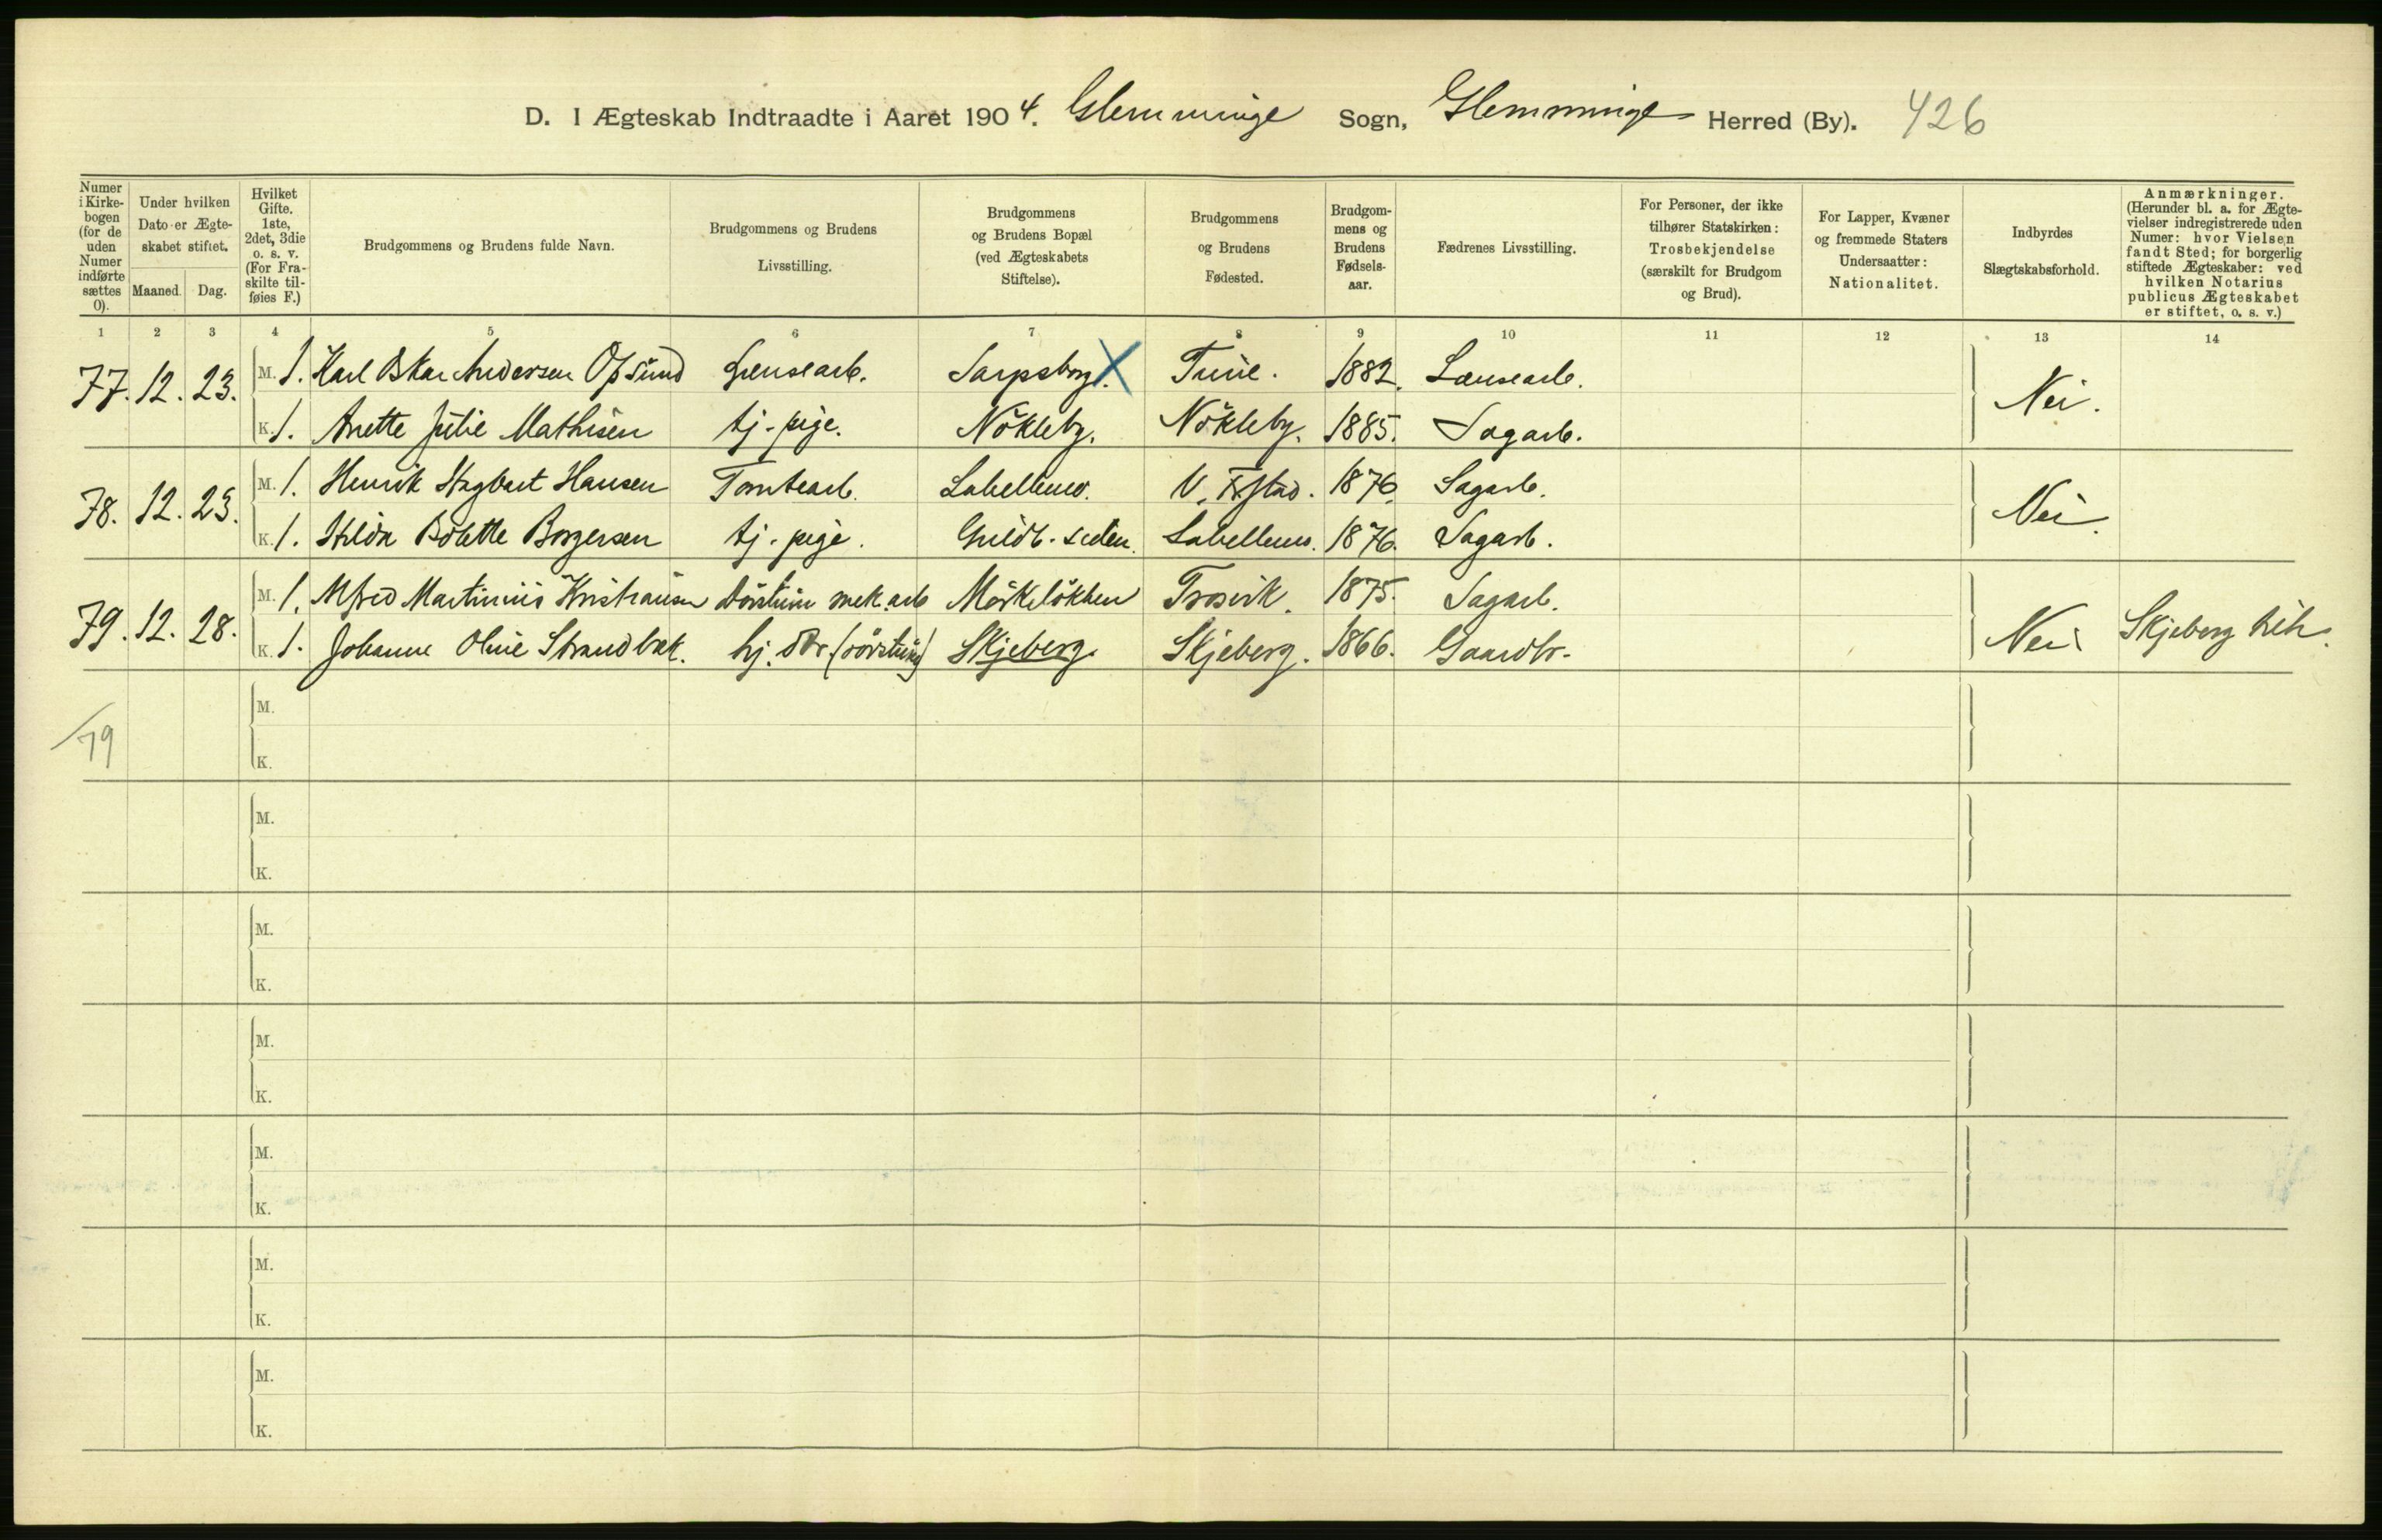 D. I Ægteskab Indtraadte i Aaret 1904. Glemminge Sogn, Glemminge Herred (By). 426
Numer i Kirkebogen (for de uden Numer indførte sættes 0).
Under hvilken Dato er Ægteskabet stiftet.
Maaned. Dag.
Hvilket Gifte. 1ste, 2det, 3die o. s. v. (For Fraskilte tilføies F.)
Brudgommens og Brudens fulde Navn.
Brudgommens og Brudens Livsstilling.
Brudgommens og Brudens Bopæl (ved Ægteskabets Stiftelse).
Brudgommens og Brudens Fødested.
Brudgommens og Brudens Fødselsaar.
Fædrenes Livsstilling.
For Personer, der ikke tilhører Statskirken: Trosbekjendelse (særskilt for Brudgom og Brud).
For Lapper, Kvæner og fremmede Staters Undersaatter: Nationalitet.
Indbyrdes Slægtskabsforhold.
Anmærkninger. (Herunder bl. a. for Ægtevielser indregistrerede uden Numer: hvor Vielsen fandt Sted; for borgerlig stiftede Ægteskaber: ved hvilken Notarius publicus Ægteskabet er stiftet, o. s. v.)
1 2 3 4 5 6 7 8 9 10 11 12 13 14
77. 12. 23. M. 1. Karl Oskar Andersen Opsund Lensearb. Sarpsborg. X Tune. 1882. Lensearb. Nei.
K. 1. Anette Julie Mathisen tj-pige. Nökleby. Nökleby. 1885. Sagarb.
78. 12. 23. M. 1. Henrik Hagbart Hansen Tomtearb. Labellens. V. Frstad. 1876. Sagarb. Nei.
K. 1. Hilda Bolette Borgersen tj-pige. Guldb.-siden. Labellens. 1876. Sagarb.
79. 12. 28. M. 1. Alfred Martinius Kristiansen døvstum mek.arb Mörkelökken Trosvik. 1875. Sagarb. Nei Skjeberg
K. 1. Johanne Oline Strandbæk. hj. (døvstum) Skjeberg. Skjeberg. 1866. Gaardbr.
M.
79
K.
M.
K.
M.
K.
M.
K.
M.
K.
M.
K.
M.
K.